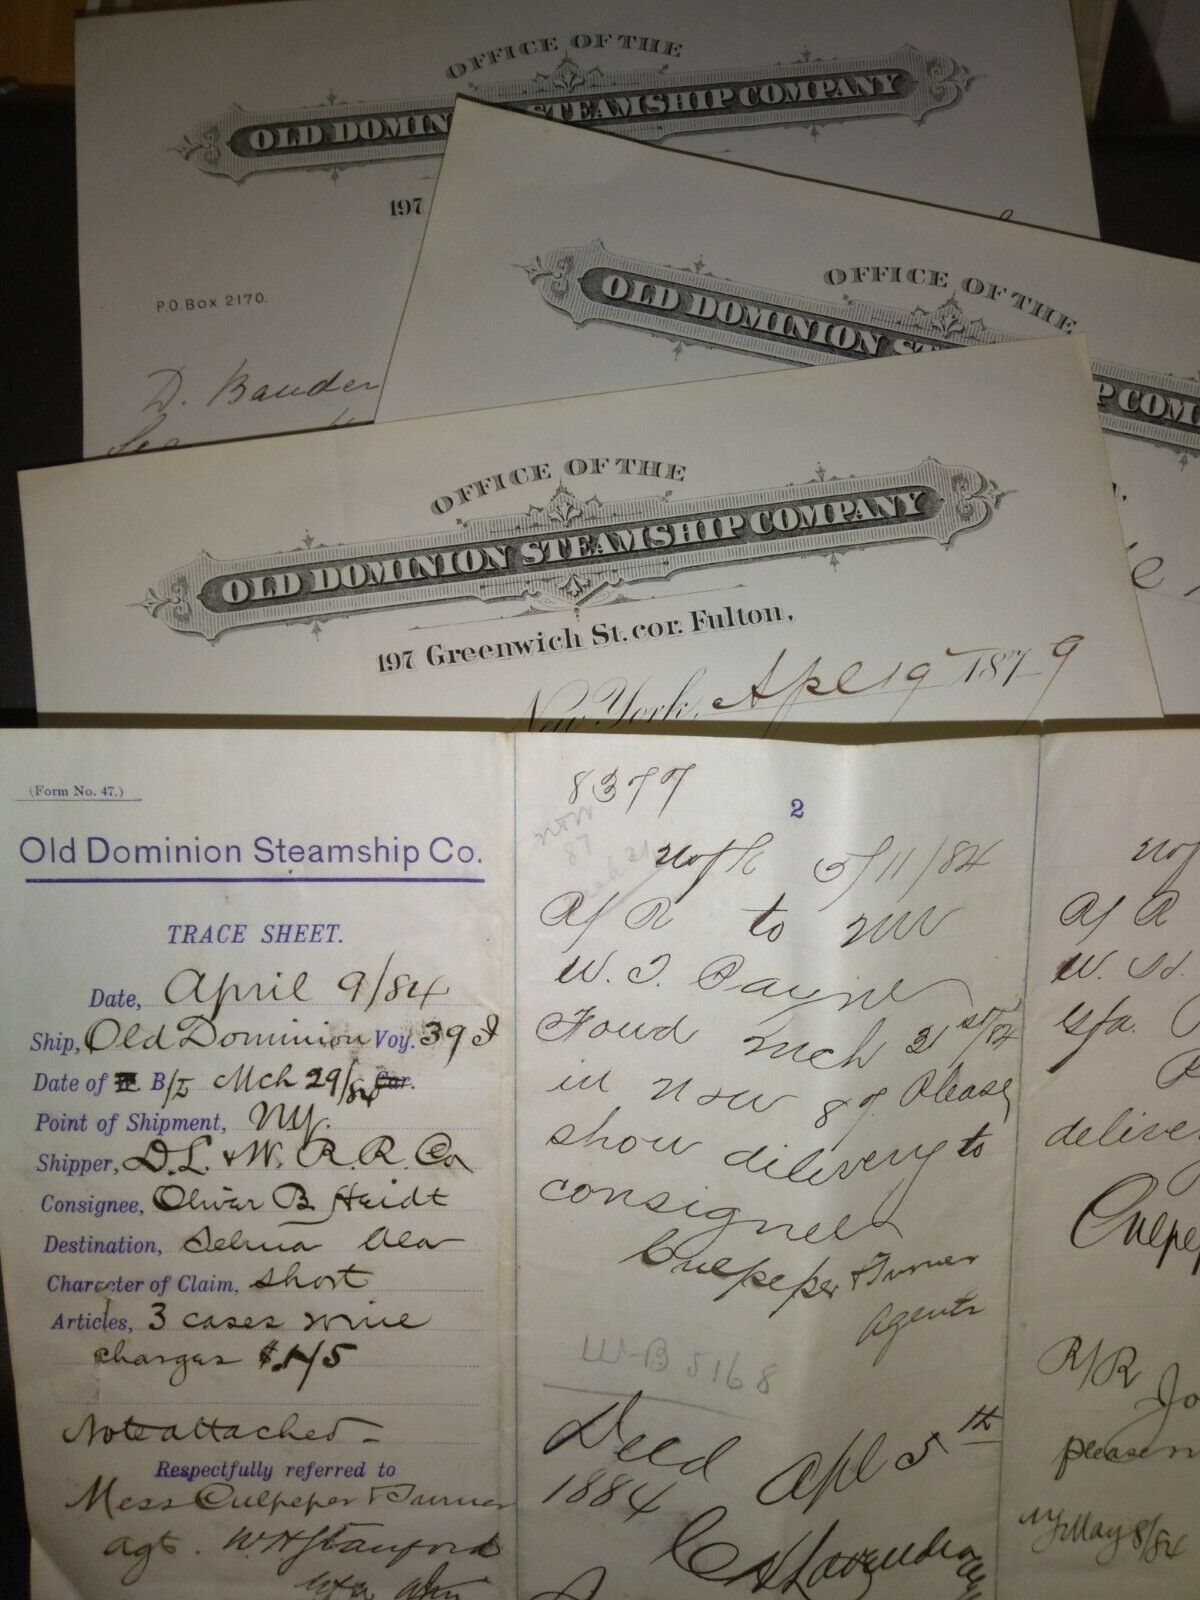 OFFICE OF THE
OLD DOMINION STEAMSHIP COMPANY
197
P.O. Box 2170.
D. Bauder
OFFICE OF THE
OLD DOMINION
P COM
OFFICE OF THE
OLD DOMINION STEAMSHIP COMPANY
197 Greenwich St. cor. Fulton,
New York, Apl 19 1879
(Form No. 47.)
Old Dominion Steamship Co.
TRACE SHEET.
Date, April 9/84
Ship, Old Dominion Voy. 39
Date of B/L Mch 29/84 Car.
Point of Shipment, NY.
Shipper, D.L. & W. R. R. Co
Consignee, Oliver B. Heidt
Destination, Selma Ala
Character of Claim, Short
Articles, 3 cases wine
charges $1.45
Note attached
Respectfully referred to
Mess Culpeper & Turner
agts. W H Stanford
8377
2
Nofk 5/11/84
R/R to NW
W. T. Payne
Foud Mch 31st/84
in N&W 87. Please
show dilivery to
consignee
Culpeper & Turner
Agents
W-B 5168
Deld Apl 5th
1884
Nof
R/R
W. H.
gfa.
delive
Culpep
R/R Jo
please
NY May 8/84